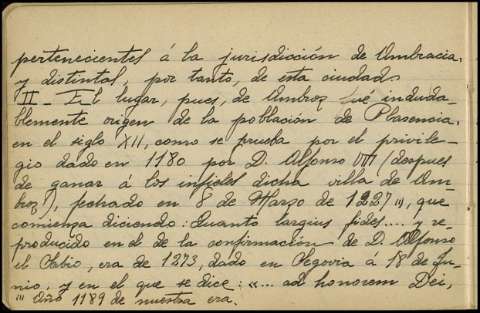 pertenecientes á la jurisdicción de Ambracia,
y distintas, por tanto, de esta ciudad.
II - El lugar, pues, de Ambroz fué induda-
blemente origen de la población de Plasencia,
en el siglo XII, como se prueba por el privile-
gio dado en 1180 por D. Alfonso VIII (despues
de ganar á los infieles dicha villa de Am-
broz), fechado en 8 de Marzo de 1227 (1), que
comienza diciendo: Quanto largius fides.... y re-
producido en el de la confirmación de D. Alfonso
el Sabio, era de 1273, dado en Segovia á 18 de Ju-
nio, y en el que se dice: «... ad honorem Dei,
(1) Año 1189 de nuestra era.